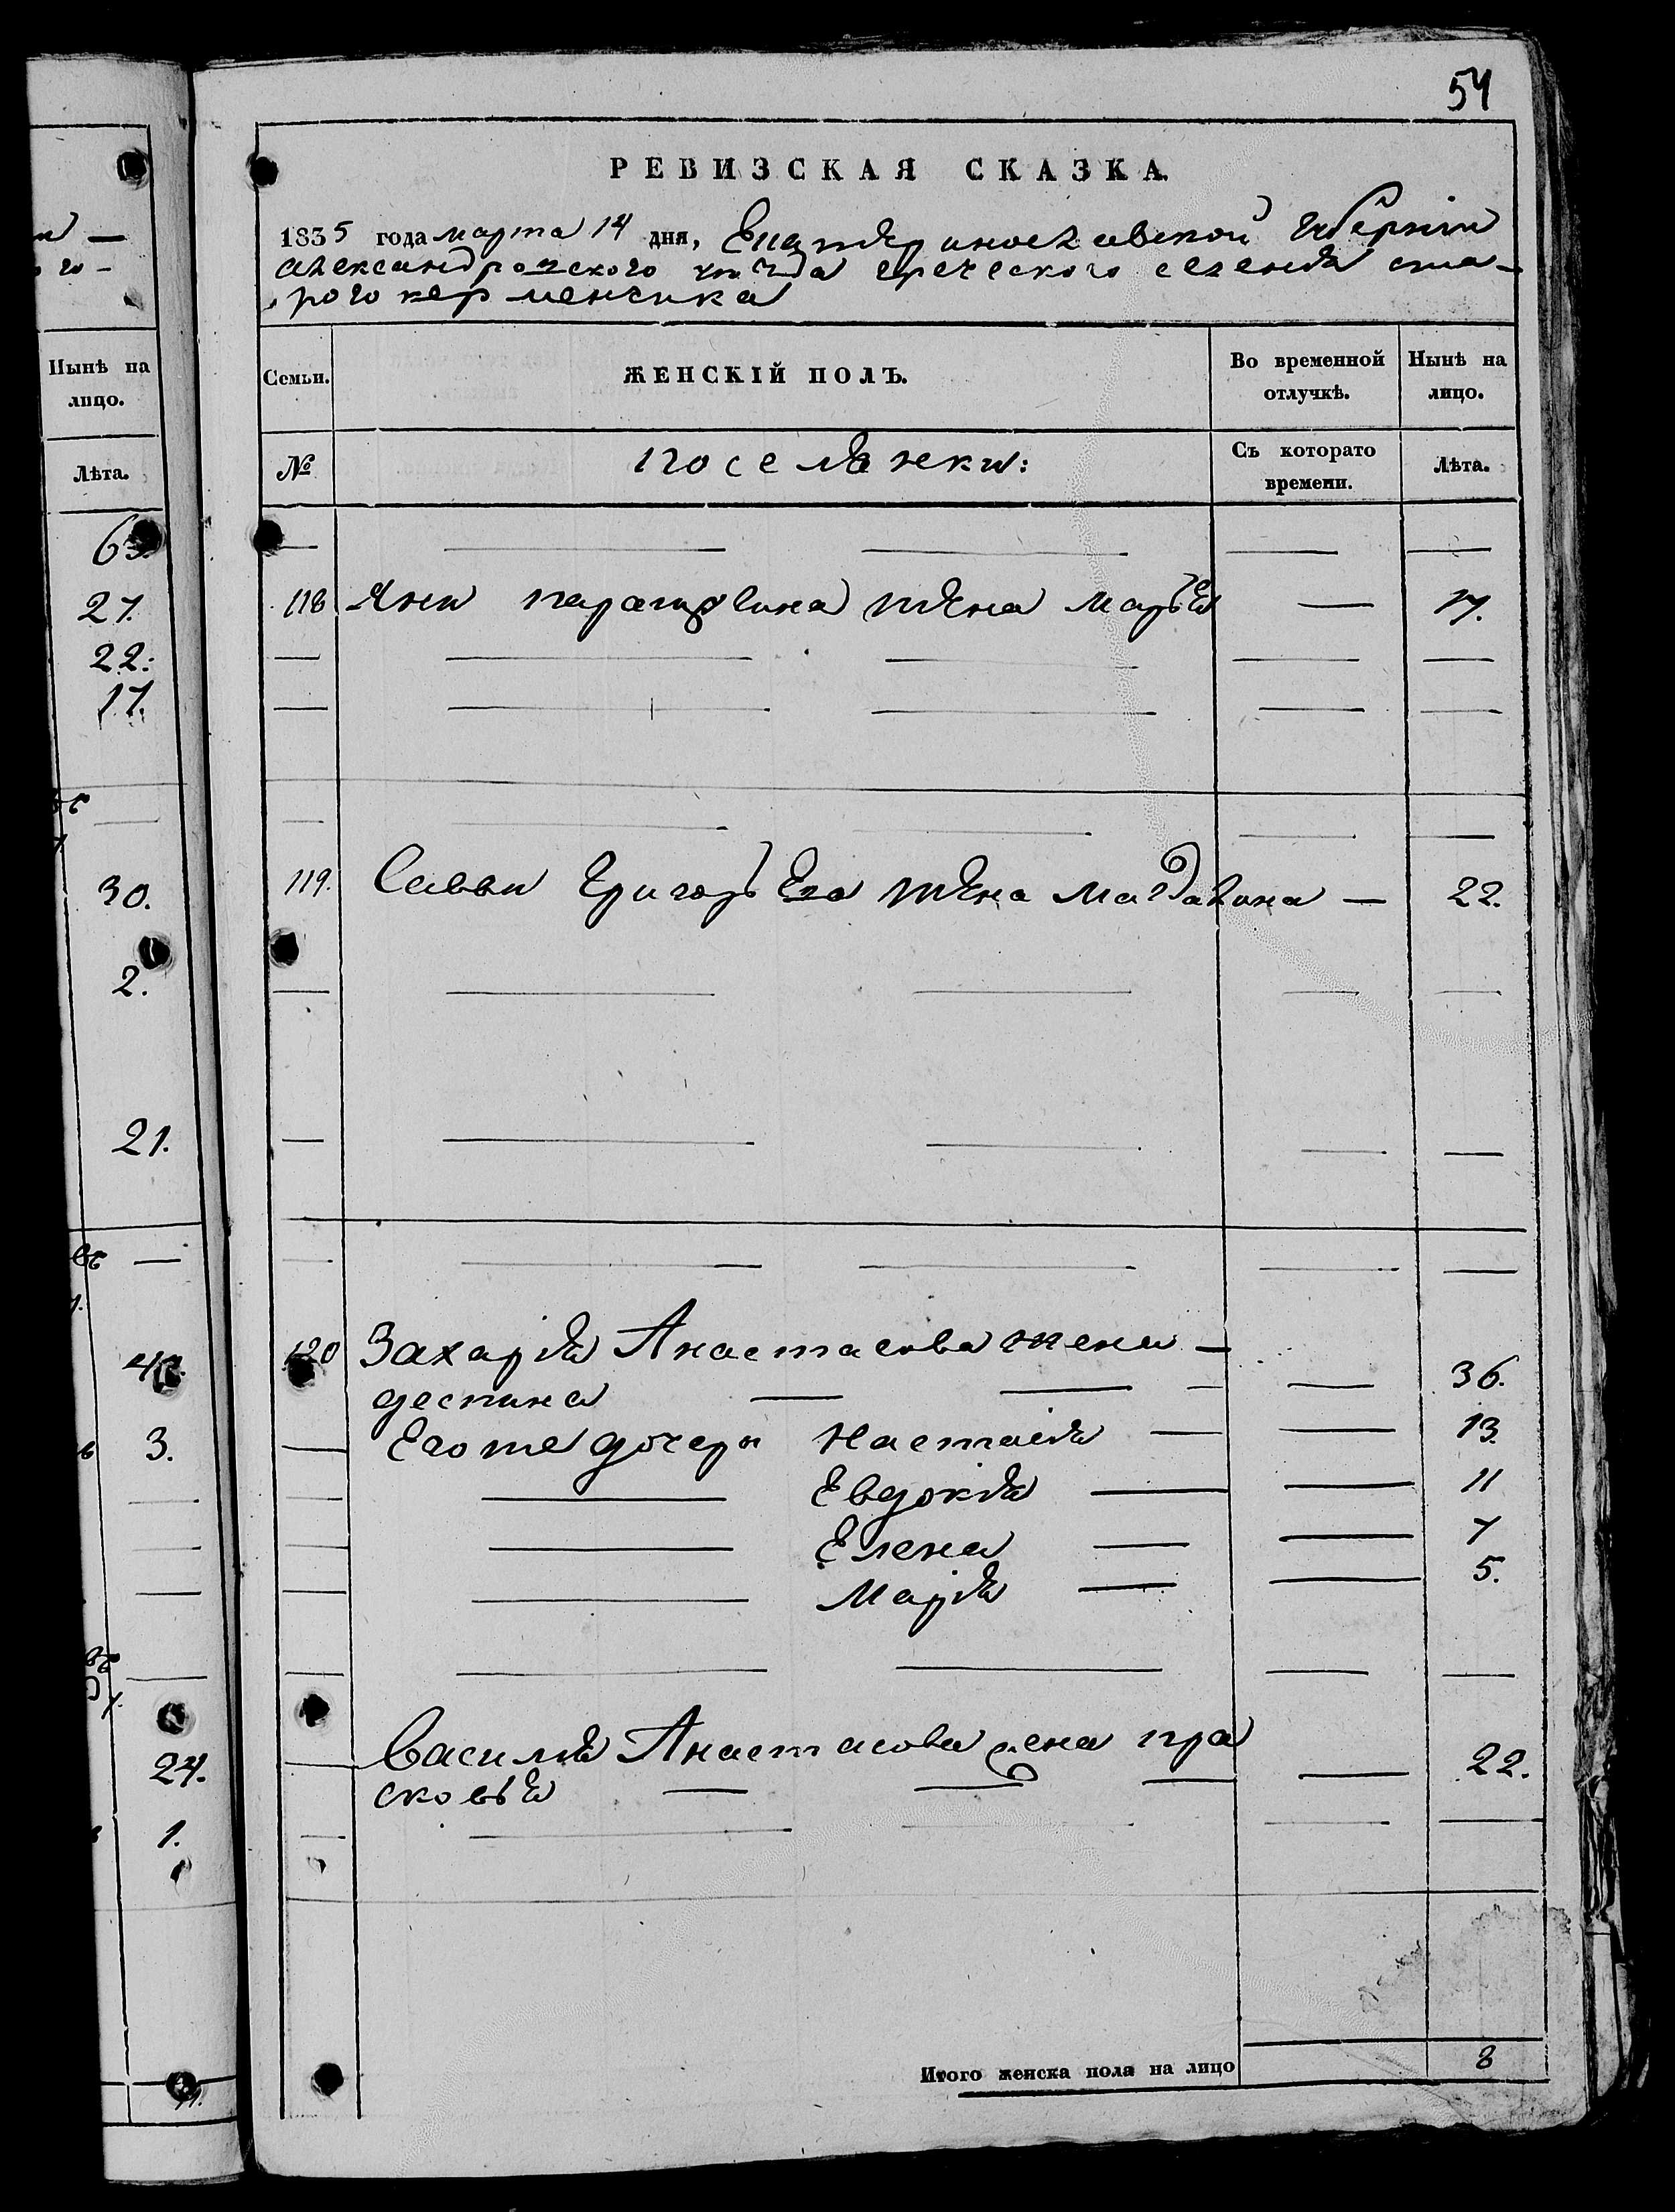 54
РЕВИЗСКАЯ СКАЗКА.
1835 года марта 14 дня, Екатеринославской Губернии
александровского уезда греческого селения ста-
рого керменчика
Нынѣ на лицо.
Лѣта.
63.
27.
22.
17.
30.
2.
21.
3.
24.
1.
Семьи. ЖЕНСКІЙ ПОЛЪ. Во временной отлучкѣ. Нынѣ на лицо.
№ поселянки: Съ которато времени. Лѣта.
118 Яни жена марья — 17.
119. Саввы Григорьева жена магдалина — 22.
120 Захария Анастасова жена —
деспина — 36.
Его же дочери Настасия — 13.
Евдокия — 11
Елена — 7
Мария — 5.
Василия Анастасова жена пра
сковья — 22.
Итого женска пола на лицо 8